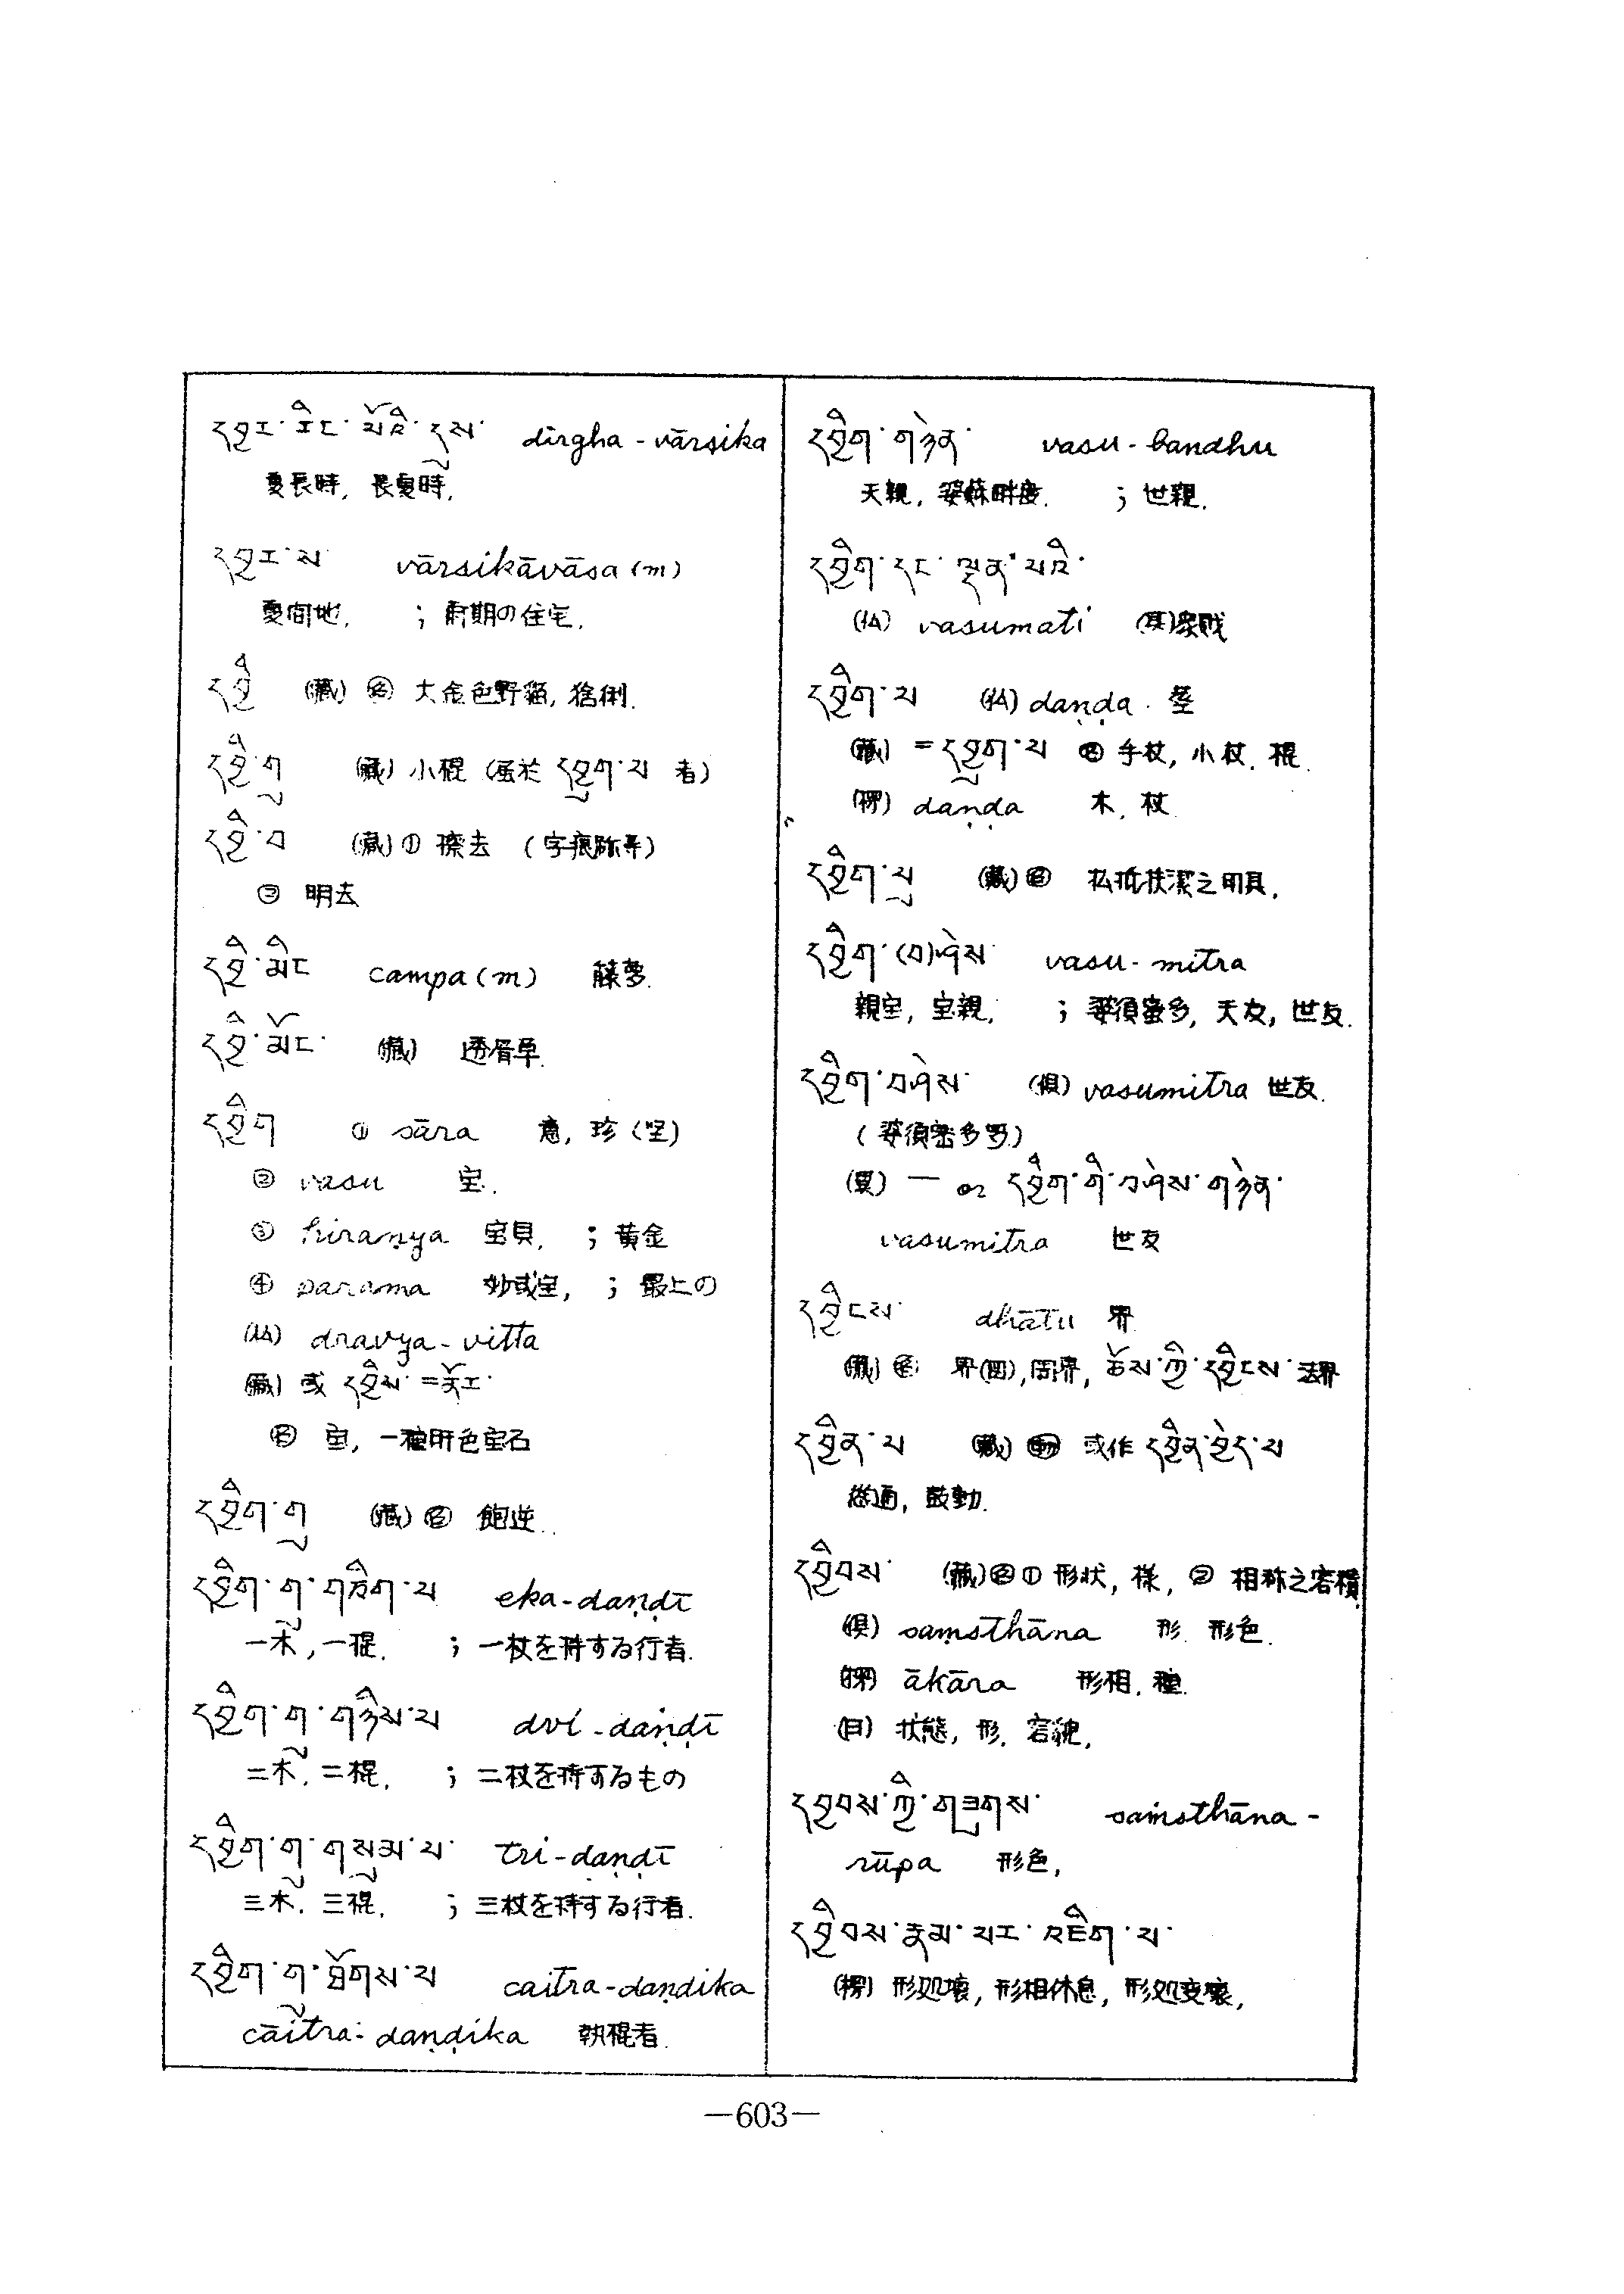 དབྱར་རིང་པོའི་དུས་ dīrgha-vārṣika
夏長時, 長夏時,
དབྱར་ས vārsikāvāsa (m)
夏間地, ; 雨期の住宅.
དབྱི (藏) 名 大金色野猫, 猞猁.
དབྱི་གུ (藏) 小棍 དབྱུག་པ 者)
དབྱི་བ (藏) ① 擦去
② 明去
དབྱི་མིང campa (m) 藤萝.
དབྱི་མོང་ (藏) 透骨草.
དབྱིག ① sāra 意, 珍 (坚)
② vasu 宝.
③ hiraṇya 宝貝, ; 黄金
④ parama 妙或宝, ; 最上の
dravya-vitta
(藏) 或 དབྱིས་ = ནོར་
名 宝, 一種 色宝石
དབྱིག་གུ (藏) 名 飽逆.
དབྱིག་གུ་གཅིག་པ eka-daṇḍī
一木, 一棍. ; 一杖を持する行者.
དབྱིག་གུ་གཉིས་པ dvi-daṇḍī
二木. 二棍. ; 二杖を持するもの
དབྱིག་གུ་གསུམ་པ་ tri-daṇḍī
三木. 三棍. ; 三杖を持する行者.
དབྱིག་གུ་ཐོགས་པ caitra-daṇḍika
cāitra-daṇḍika 執棍者.
དབྱིག་གཉེན་ vasu-bandhu
天親, 婆蘇畔度. ; 世親.
དབྱིག་དང་ལྡན་པའི་
vasumati
དབྱིག་པ daṇḍa. 茎
(藏) = དབྱུག་པ 名 手杖, 小杖. 棍.
daṇḍa 木, 杖
དབྱིག་པུ (藏) 名 之用具.
དབྱིག་(བ)ཤེས vasu-mitra
親宝, 宝親, ; 婆須蜜多, 天友, 世友.
དབྱིག་བཤེས་ (倶) vasumitra 世友.
(婆須蜜多罗)
— or དབྱིག་གི་བཤེས་གཉེན་
vasumitra 世友
དབྱིངས་ dhātu 界.
(藏) 名 界(囲), 周界, ཆོས་ཀྱི་དབྱིངས་ 法界
དབྱིན་པ (藏) 動 或作 དབྱིན་བྱེད་པ
鼓動.
དབྱིབས་ (藏) 名 ① 形状, 様, ② 相称之容積.
(倶) saṃsthāna 形. 形色.
ākāra 形相. 種.
(目) 状態, 形. 容貌,
དབྱབས་ཀྱི་གཟུགས་ saṁsthāna-
rūpa 形色,
དབྱིབས་རྣམ་པར་འཇིག་པ་
形処壊, 形相休息, 形処変壊,
—603—